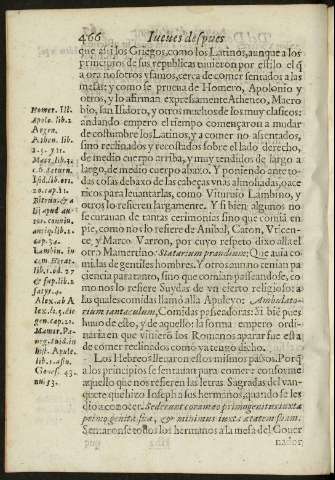 466 Iueues despues
que assi los Griegos, como los Latinos, aunque a los
principios de sus republicas tuuieron por estilo el q̃
aora nosotros vsamos, cerca de comer sentados a las
mesas: y como se prueua de Homero, Apolonio y
otros, y lo afirman expressamente Atheneo, Macro
bio, san Isidoro, y otros muchos de los muy clasicos:
andando empero el tiempo començaron a mudar
de costumbre los Latinos, y a comer no assentados,
sino reclinados y recostados sobre el lado derecho,
de medio cuerpo arriba, y muy tendidos de largo a
largo, de medio cuerpo abaxo. Y poniendo ante to
das cosas debaxo de las cabeças vnas almohadas, o ace
ricos para leuantarlas, como Viturnio Lambino, y
otros lo refieren largamente. Y si bien algunos no
se curauan de tantas ceremonias sino que comiã en
pie, como nos lo refiere de Anibal, Caton,
y Marco Varron, por cuyo respeto dixo alla el
otro Mamertino: Statarium prandium: Que auia co
midas de gentiles hombres. Y otros aun no tenian pa
ciencia para tanto, sino que comian passeandose, co
mo nos lo refiere Suydas de vn cierto religioso: a
las quales comidas llamó alla Apuleyo: Ambulato
rium ientaculum, Comidas passeadoras: Si biẽ pues
huuo de esto, y de aquello: la forma empero ordi
naria en que vinieró los Romanos a parar fue esta
de comer reclinados como ya tengo dicho.
Los Hebreos lleuaron estos mismos passos. Porq̃
a los principios se sentauan para comer e conforme
aquello que nos refieren las letras Sagradas del van-
quete que hizo Ioseph a sus hermanos, quando se les
dio a conocer. Sederunt coram eo primogenitus iuxta
primogenita sua, & minimus iuxta ætatem suam.
Sentaronse todos los hermanos a la mesa del Gouer
nador
Homer. Ill.
Apolo. lib. 2
Argon.
Athen. lib.
Macr. lib. 3.
Isid. lib. ori.
20. cap. 11.
antiq. lib. 2
cap. 34.
Lambin. in
lib. 1. od. 27
& sup. lib. 2
satyr. 4.
Alex. ab A
lex. li. 5. die
gen. cap. 21.
Mamer. Pa-
neg.
Apule.
lib. 1. asin.
Genes. 43.
nu. 33.